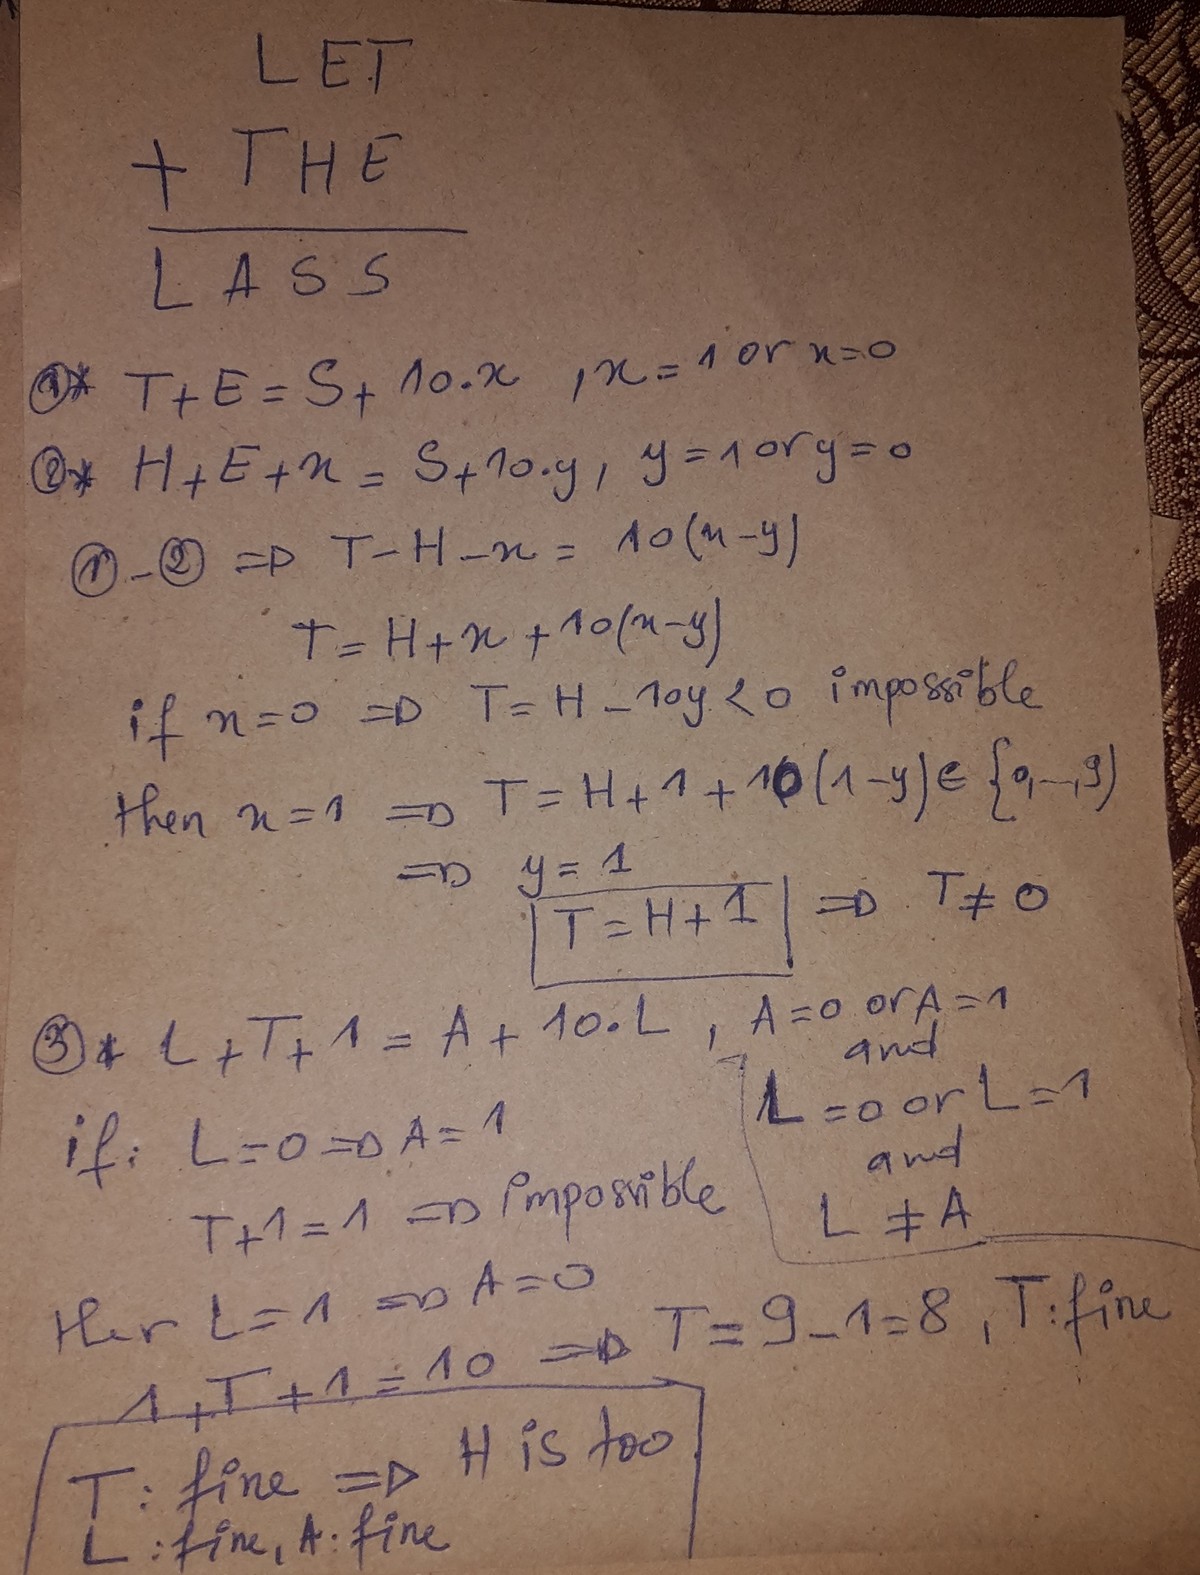 LET
+ THE
LASS
①* T+E=S+10.x , x=1 or x=0
②* H+E+x=S+10.y, y=1 or y=0
①-② ⇒ T-H-x= 10(x-y)
T=H+x+10(x-y)
if x=0 ⇒ T=H-10y<0 impossible
then x=1 ⇒ T=H+1+10(1-y)∈{0,-,9}
⇒ y=1
T=H+1 ⇒ T≠0
③* L+T+1=A+10.L , A=0 or A=1
and
L=0 or L=1
and
L≠A
if: L=0⇒A=1
T+1=1 ⇒ impossible
then L=1 ⇒ A=0
1+T+1=10 ⇒ T=9-1=8, T:fine
T: fine ⇒ H is too
L:fine, A:fine